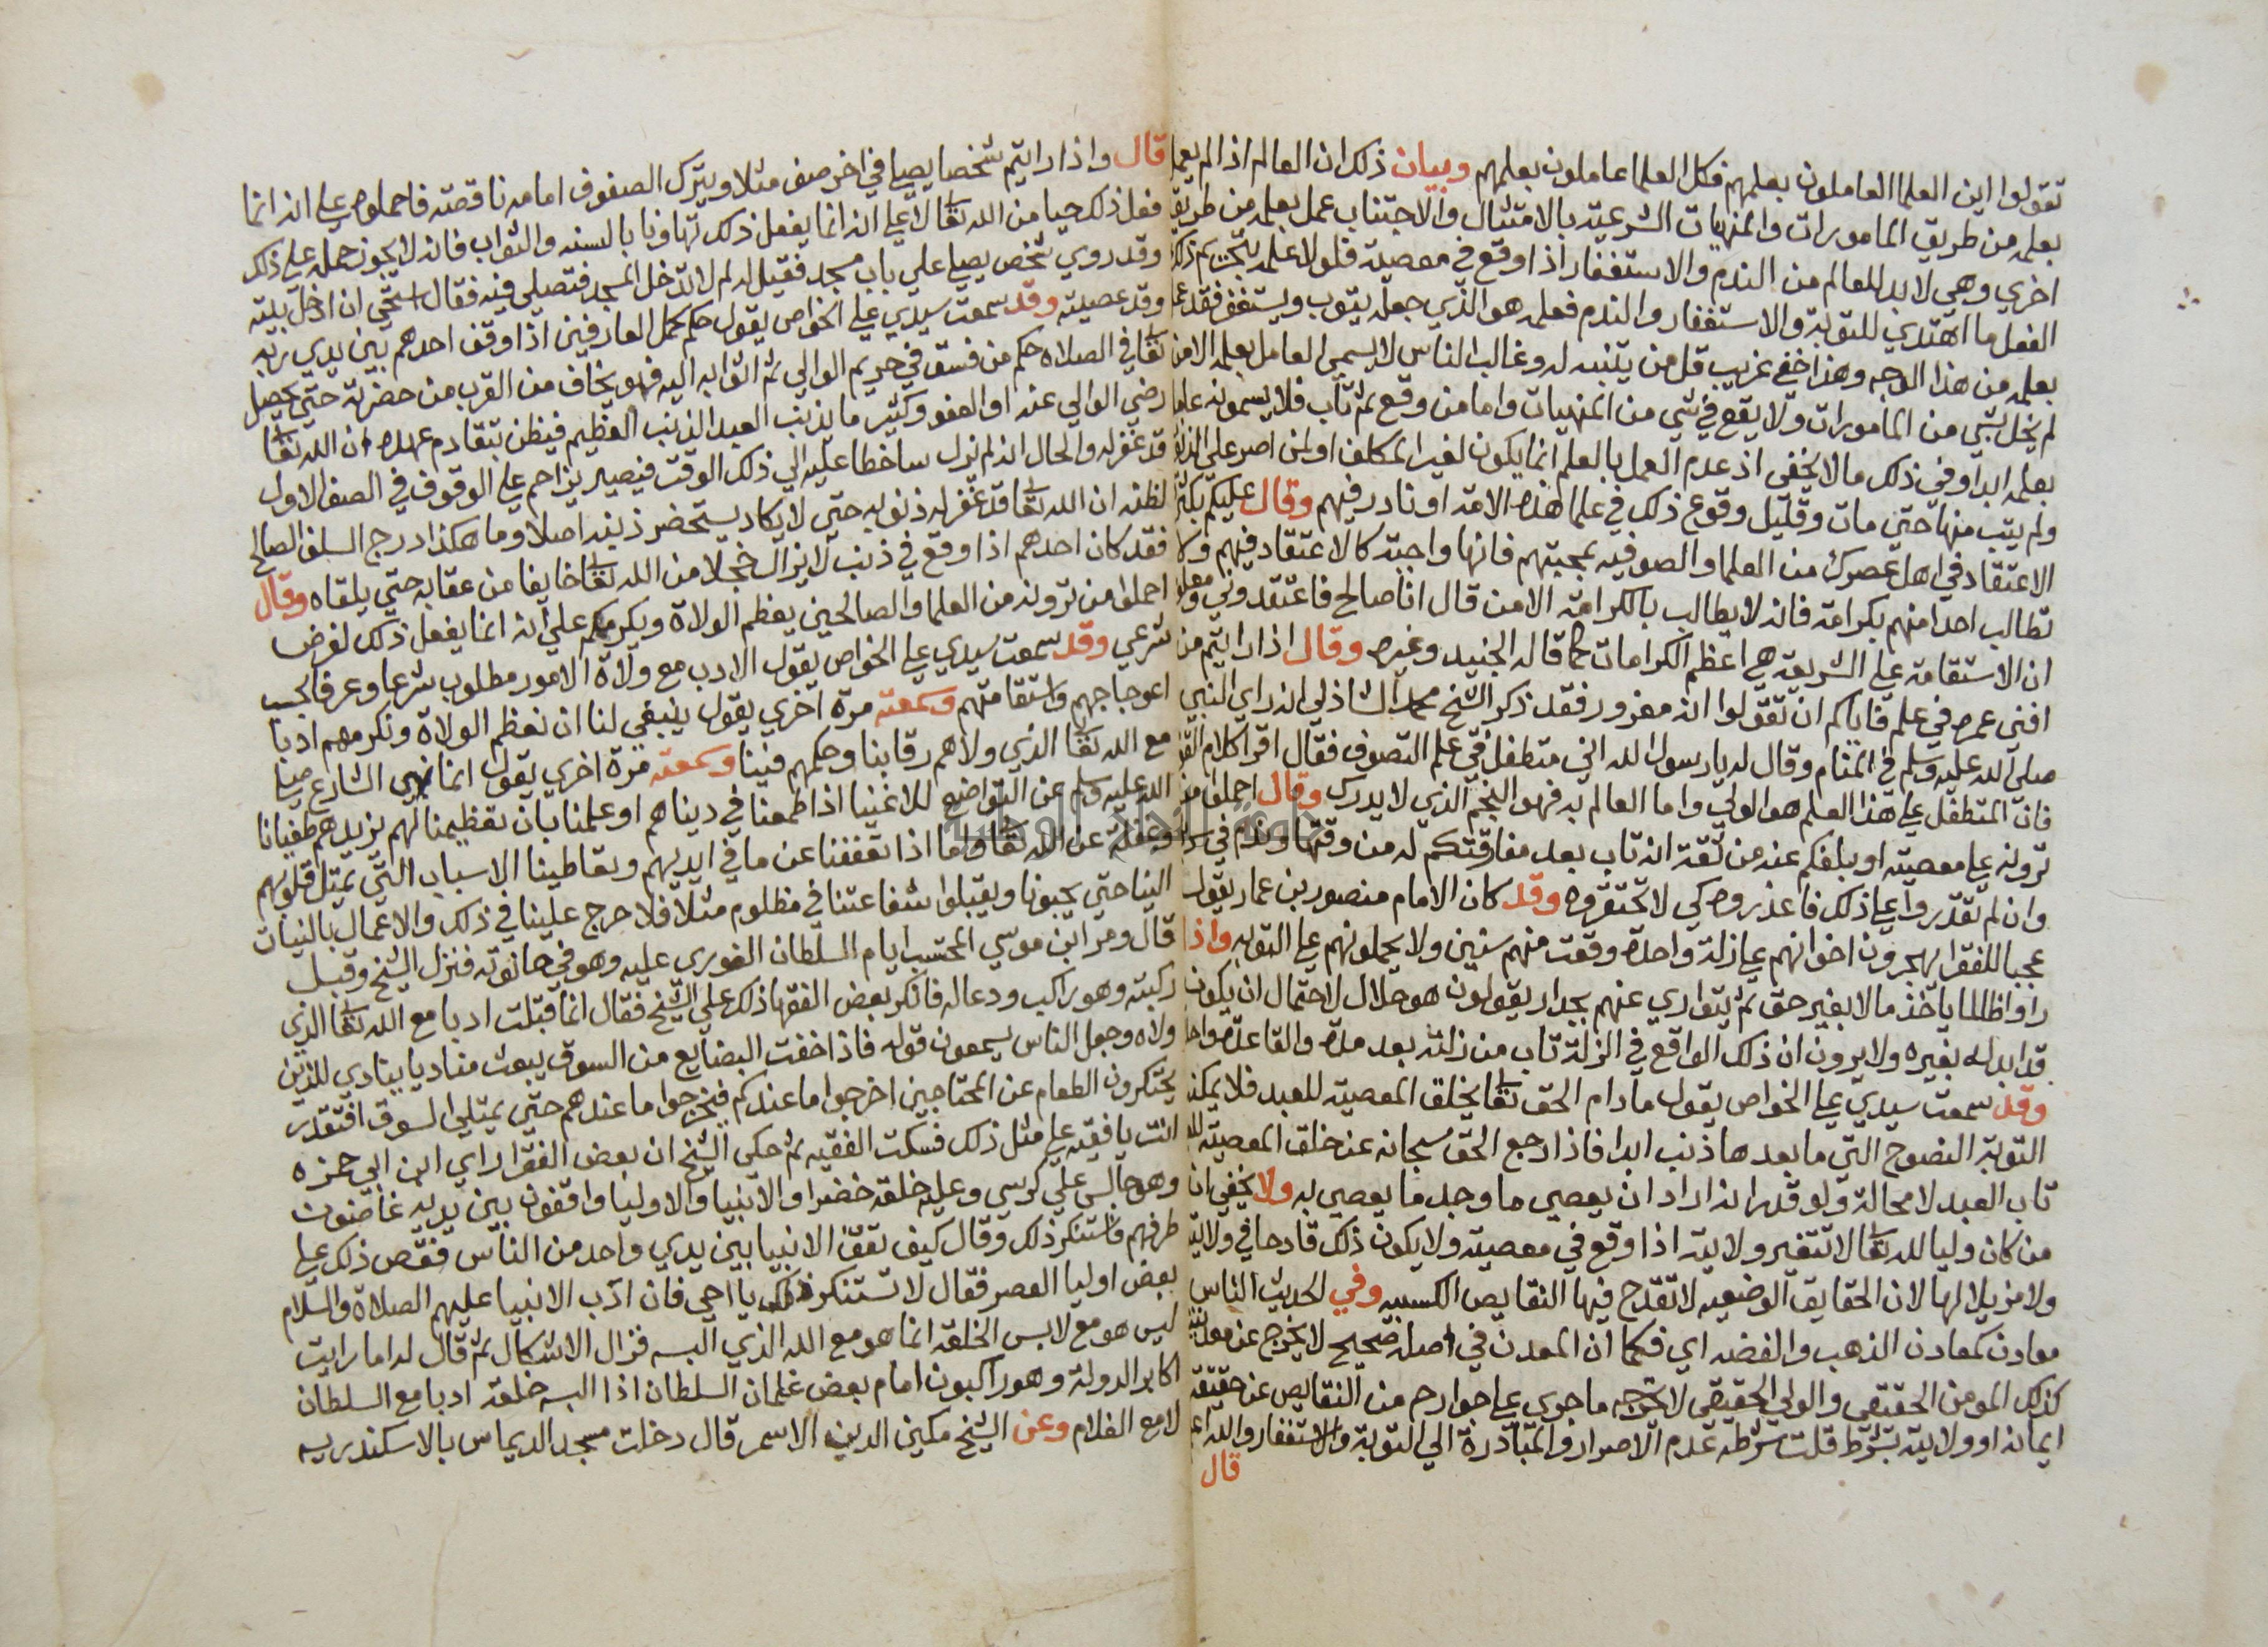 تقولوا اين العلما العاملون بعلمهم فكل العلما عاملون بعلمهم وبيان ذلك ان العالم اذا لم يعمل
بعلمه من طريق المامورات والمنهيات الشرعيه بالامتثال والاجتناب عمل بعلمه من طريق
اخري وهي لابد للعالم من الندم والاستغفار اذا وقع في معصية فلولا علمه بتحريم ذلك
الفعل ما اهتدي للتوبة والاستغفار والندم فعلمه هو الذي جعله يتوب ويستغفر فقد عمل
بعلمه من هذا الوجه وهذا اخفي غريب قل من يتنبه له وغالب الناس لا يسمي العامل بعلمه الا من
لم يخل بشي من المامورات ولا يقع في شي من المنهيات واما من وقع ثم تاب فلا يسمونه عاملا
بعلمه ابدا وفي ذلك ما لا يخفي اذ عدم العمل بالعلم انما يكون لغير المكلف او لمن اصر علي الذنوب
ولم يتب منها حتي مات وقليل وقوع ذلك في علما هذه الامة او نادر فيهم وقال عليكم بكثرة
الاعتقاد في اهل عصرك من العلما والصوفيه بمحبتهم فانها واجبة كالاعتقاد فيهم ولا
تطالب احدا منهم بكرامة فانه لا يطالب بالكرامة الا من قال انا صالح فاعتقدوني ومعلوم
ان الاستقامة علي الشريعة هي اعظم الكرامات كما قاله الجنيد وغيره وقال اذا رايتم من
افني عمره في علم فاياكم ان تقولوا انه مغرور فقد ذكر الشيخ محمد الشاذلي انه راي النبي
صلي الله عليه وسلم في المنام وقال له يا رسول الله اني متطفل في علم التصوف فقال اقرا كلام القوم
فان المتطفل علي هذا العلم هو الولي واما العالم به فهو النجم الذي لا يدرك وقال احملوا من
ترونه علي معصية او بلغكم عنه من ثقة انه تاب بعد مفارقتكم له من وقتها وندم في سره
وان لم تقدروا علي ذلك فاعذروه كي لا تحتقروه وقد كان الامام منصور بن عمار يقول
عجبا للفقرا يهجرون اخوانهم علي زلة واحدة وقعت منهم سنين ولا يحملونهم علي التوبه واذا
راوا ظالما ياخذ مالا بغير حق ثم يتواري عنهم بجدار يقولون هو حلال لاحتمال ان يكون
قد ابدله بغيره ولا يرون ان ذلك الواقع في الزلة تاب من زلته بعد مدة والقاعدة واحدة
وقد سمعت سيدي علي الخواص يقول ما دام الحق تعا يخلق المعصية للعبد فلا يمكنه
التوبة النصوح التي ما بعدها ذنب ابدا فاذا رجع الحق سبحانه عن خلق المعصية
تاب العبد لا محالة ولو قدر انه اراد ان يعصي ما وجد ما يعصي به ولا يخفي ان
من كان وليا لله تعا لا تتغير ولايته اذا وقع في معصية ولا يكون ذلك قادحا في ولايته
ولا مزيلا لها لان الحقايق الوضعيه لا تقدح فيها النقايص الكسبيه وفي الحديث الناس
معادن كمعادن الذهب والفضه اي فكما ان المعدن في اصله صحيح لا يخرج عن معدنيته
كذلك المومن الحقيقي والولي الحقيقي لا يخرجه ما جري علي جوارحه من النقايص عن حقيقة
ايمانه او ولايته بشرط قلت شرطه عدم الاصرار والمبادرة الي التوبة والاستغفار والله اعلم
قال
قال واذا رايتم شخصا يصلي في اخر صف مثلا ويترك الصفوف امامه ناقصة فاحملوه علي انه انما
فعل ذلك حيا من الله تعا لا علي انه انما يفعل ذلك تهاونا بالسنه والثواب فانه لا يجوز حمله علي ذلك
وقد روي شخص يصلي علي باب مسجد فقيل له لم لا تدخل المسجد فتصلي فيه فقال استحي ان ادخل بيته
وقد عصيته وقد سمعت سيدي علي الخواص يقول حكم كمل العارفين اذا وقف احدهم بين يدي ربه
تعا في الصلاه حكم من فسق في حريم الوالي ثم اتوا به اليه فهو يخاف من القرب من حضرته حتي يحصل
رضي الوالي عنه او العفو وكثير ما يذنب العبد الذنب العظيم فيظن بتقادم عهده ان الله تعا
قد غفر له والحال انه لم يزل ساخطا عليه الي ذلك الوقت فيصير يزاحم علي الوقوف في الصف الاول
لظنه ان الله تعا قد غفر له ذنوبه حتي لا يكاد يستحضر ذنبه اصلا وما هكذا درج السلف الصالح
فقد كان احدهم اذا وقع في ذنب لا يزال خجلا من الله تعا خايفا من عقابه حتي يلقاه وقال
احملوا من ترونه من العلما والصالحين يعظم الولاة ويكرمهم علي انه انما يفعل ذلك لغرض
شرعي وقد سمعت سيدي علي الخواص يقول الادب مع ولاة الامور مطلوب شرعا وعرفا بحسب
اعوجاجهم واستقامتهم وسمعته مرة اخري يقول ينبغي لنا ان نعظم الولاة ونكرمهم ادبا
مع الله تعا الذي ولاهم رقابنا وحكمهم فينا وسمعته مرة اخري يقول انما نهي الشارع صلي
الله عليه وسلم عن التواضع للاغنيا اذا طمعنا في دنياهم او علمنا بان تعظيمنا لهم يزيدهم طغيانا
وغفلة عن الله تعا واما اذا تعففنا عن ما في ايديهم وتعاطينا الاسباب التي تميل قلوبهم
الينا حتي يحبونا ويقبلوا شفاعتنا في مظلوم مثلا فلا حرج علينا في ذلك والاعمال بالنيات
قال ومر ابن موسي المحتسب ايام السلطان الغوري عليه وهو في حانوته فنزل الشيخ وقبل
ركبته وهو راكب ودعا له فانكر بعض الفقها ذلك علي الشيخ فقال انما قبلت ادبا مع الله تعا الذي
ولاه وجعل الناس يسمعون قوله فاذا خفت البضايع من السوق يبعث مناديا ينادي للذين
يحتكرون الطعام عن المحتاجين اخرجوا ما عندكم فيخرجوا ما عندهم حتي يمتلي السوق افتقدر
انت يا فقيه علي مثل ذلك فسكت الفقيه ثم حكي الشيخ ان بعض الفقرا راي ابن ابي حمزه
وهو جالس علي كرسي وعليه خلعة خضرا والانبيا والاوليا واقفون بين يديه غاضون
طرفهم فاستنكر ذلك وقال كيف تقف الانبيا بين يدي واحد من الناس فقص ذلك علي
بعض اوليا العصر فقال لا تستنكر ذلك يا اخي فان ادب الانبيا عليهم الصلاة والسلام
ليس هو مع لابس الخلعة انما هو مع الله الذي البسه فزال الاشكال ثم قال له اما رايت
اكابر الدولة وهو راكبون امام بعض غلمان السلطان اذا البسه خلعة ادبا مع السلطان
لا مع الغلام وعن الشيخ مكين الدين الاسمر قال دخلت مسجد الديماس بالاسكندريه